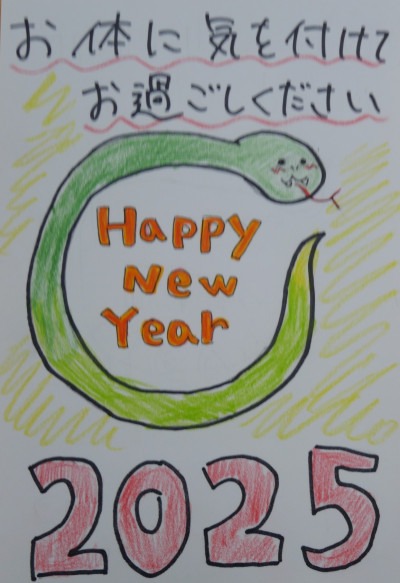 お体に気を付けて
お過ごしください
Happy
New
Year
2025